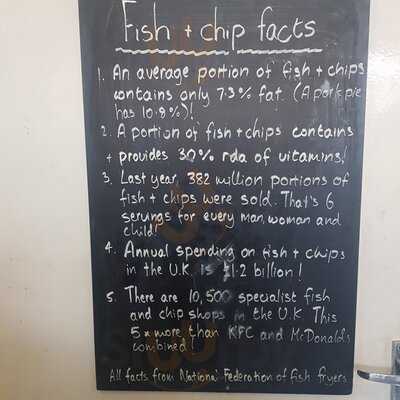 Fish + chip facts
1. An average portion of fish + chips
contains only 7.3% fat. (A pork pie
has 10.8%)!
2. A portion of fish + chips contains
+ provides 30% rda of vitamins!
3. Last year, 382 million portions of
fish + chips were sold. That's 6
servings for every man, woman and
child!
4. Annual spending on fish + chips
in the U.K. is £1.2 billion!
5. There are 10,500 specialist fish
and chip shops in the U.K. This
5x more than KFC and McDonald's
combined!
All facts from National Federation of fish fryers